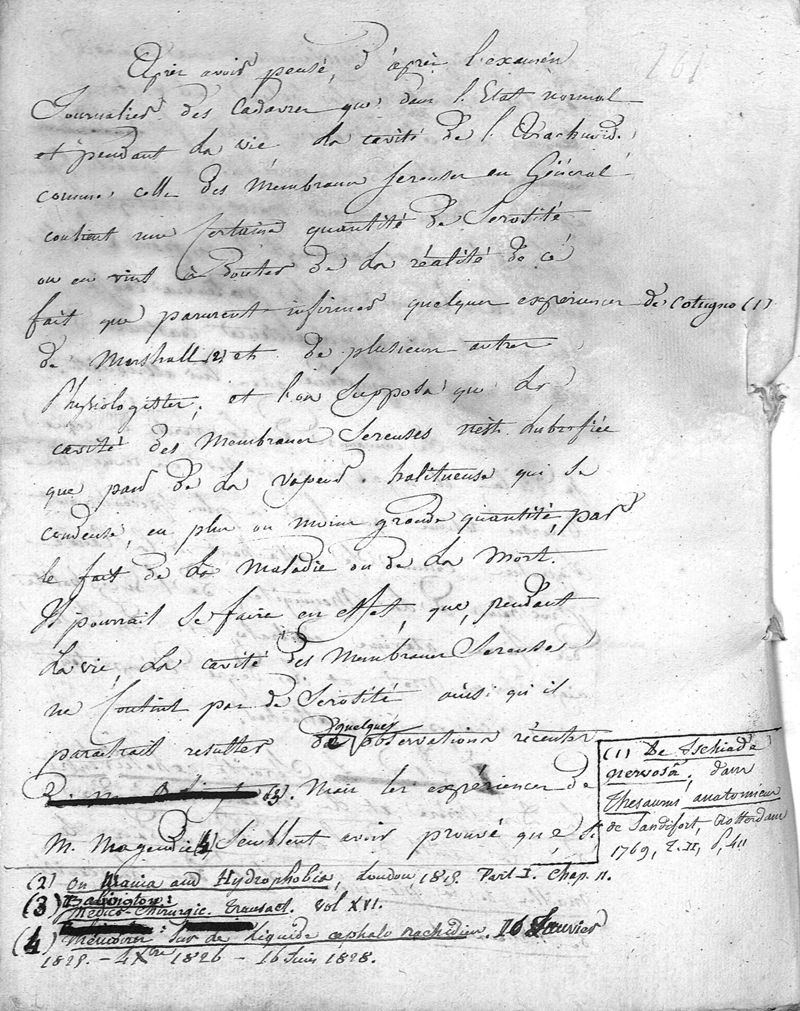 261
Après avoir pensé, d'après l'examen
Journalier des Cadavres que dans l'Etat normal
et pendant la vie la cavité de l'Arachnoïde
comme celle des Membranes Sereuses en Général
contient une Certaine quantité de Serosité
on en vint à douter de la réalité de ce
fait que parurent infirmer quelques experiences de Cotugno (1)
de Marshall (2) et de plusieurs autres
Physiologistes, et l'on Supposa que la
cavité des Membranes Sereuses n'est lubrifiée
que par de la vapeur halitueuse qui se
condense, en plus ou moins grande quantité, par
le fait de la Maladie ou de la Mort.
Il pourrait se faire en effet, que, pendant
la vie, la cavité des Membranes Sereuses
ne Contint pas de Serosité ainsi qu'il
paraitrait resulter de quelques observations récentes
(3). Mais les experiences de
M. Magendie (4) Semblent avoir prouvé que, si
(1) De Ischiade
nervosâ, dans
Thesaurus anatomicus
de Sandifort, Rotterdam
1769, T. II, P, 411
(2) On Mania and Hydrophobia, London, 1815. Part I. Chap. II.
(3) Babington:
Medico-Chirurgic. Transact. Vol XVI.
(4) Memoires: Sur de liquide cephalo rachidien. 16 Janvier
1825. - 4 Xbre 1826 - 16 Juin 1828.